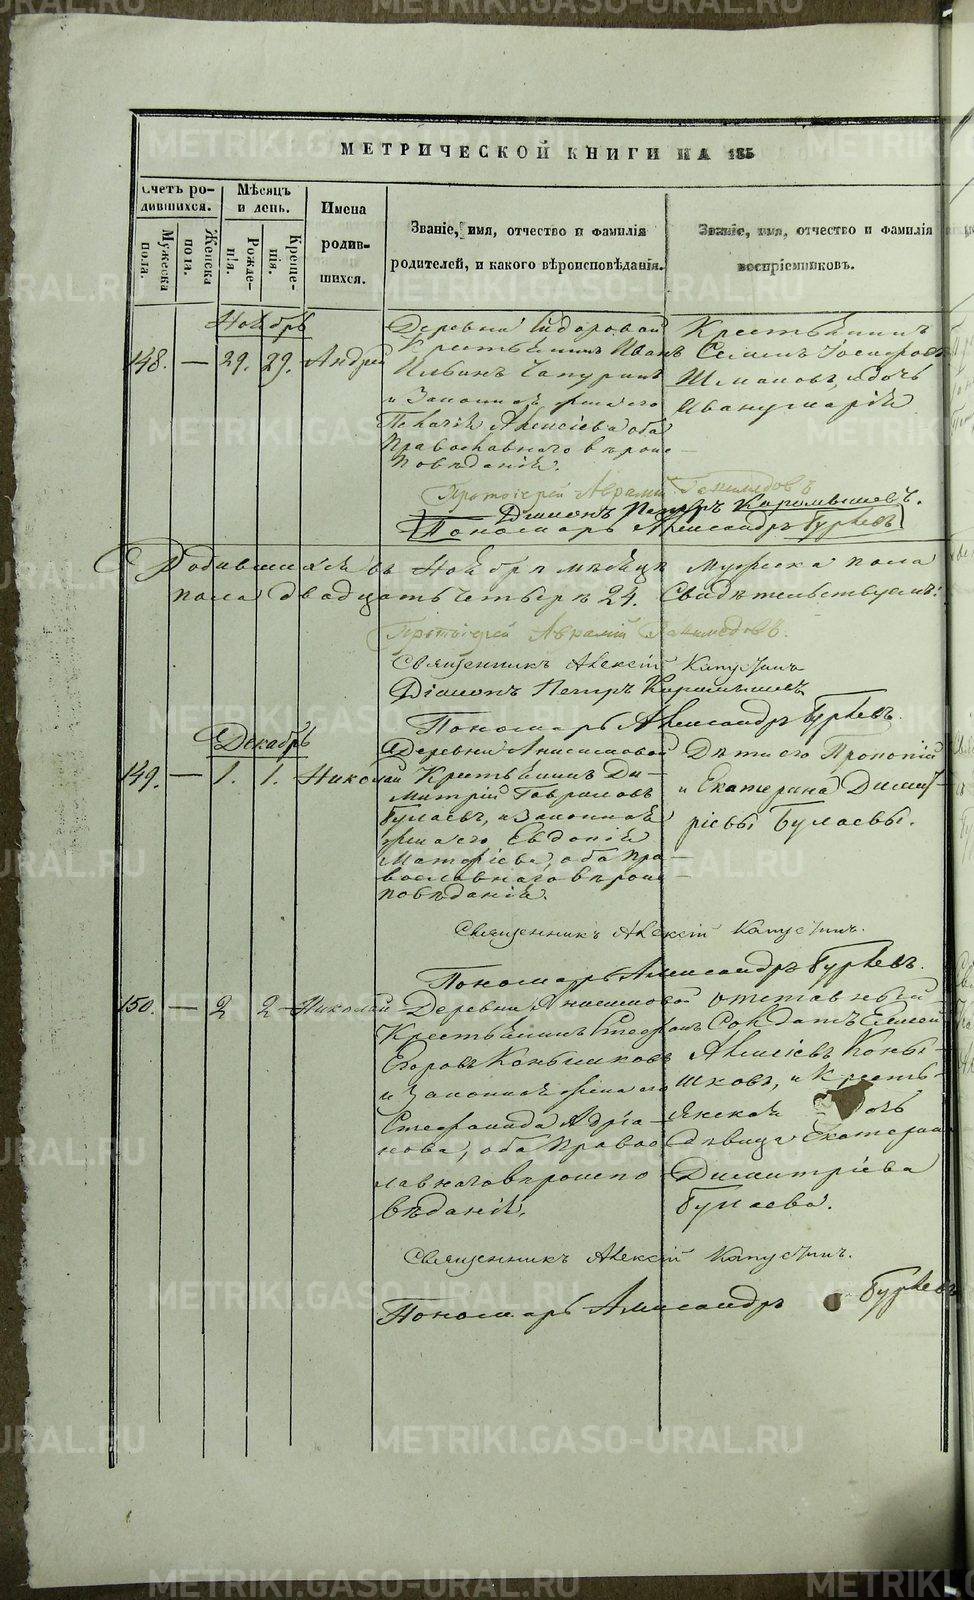 МЕТРИЧЕСКОЙ КНИГИ НА 185
Счетъ родившихся.
Мужеска пола.
Женска пола.
Мѣсяцъ и день.
Рожденія.
Крещенія.
Имена родившихся.
Званіе, имя, отчество и фамилія родителей, и какого вѣроисповѣданія.
Званіе, имя, отчество и фамилія воспріемниковъ.
Ноябрь
148. — 29. 29. Андрей
Деревни Сидоровой
Крестьянинъ Иванъ
и Законная жена его
Пелагія Алексіева оба
Православнаго вѣроис-
повѣданія.
Крестьянинъ
Семенъ Іосифовъ
и дочь
Протоіерей Аврамій
Діаконъ Петръ Карамышевъ.
Пономарь Александръ Гуляевъ
Родившихся въ Ноябрѣ мѣсяцѣ Мужеска пола
пола двадцать четыре 24. Свидѣтельствуемъ:
Протоіерей Аврамій
Священникъ Алексій Капустинъ
Діаконъ Петръ Карамышевъ
Пономарь Александръ Гуляевъ.
Декабрь
149. — 1. 1. Николай
Деревни Анисимовой
Крестьянинъ Ди-
митрій Гавриловъ
Булаевъ, и Законная
жена его Евдокія
Матѳіева, оба пра-
вославнаго вѣроис-
повѣданія.
Дѣти его Прокопій
и Екатерина Димит-
ріевы Булаевы.
Священникъ Алексій Капустинъ.
Пономарь Александръ Гуляевъ.
150. — 2 2 — Николай
Деревни Анисимовой
Крестьянинъ Стефанъ
Егоровъ Коньшиковъ
и Законная жена его
Стефанида Адріа-
нова, оба Правос-
лавнаго вѣроиспо-
вѣданія.
отставный
Солдатъ
Алексіевъ Коны-
шковъ, и Кресть-
янская дочь
Дѣвица Екатерина
Димитріева
Булаева.
Священникъ Алексій Капустинъ.
Пономарь Александръ Гуляевъ
METRIKI.GASO-URAL.RU